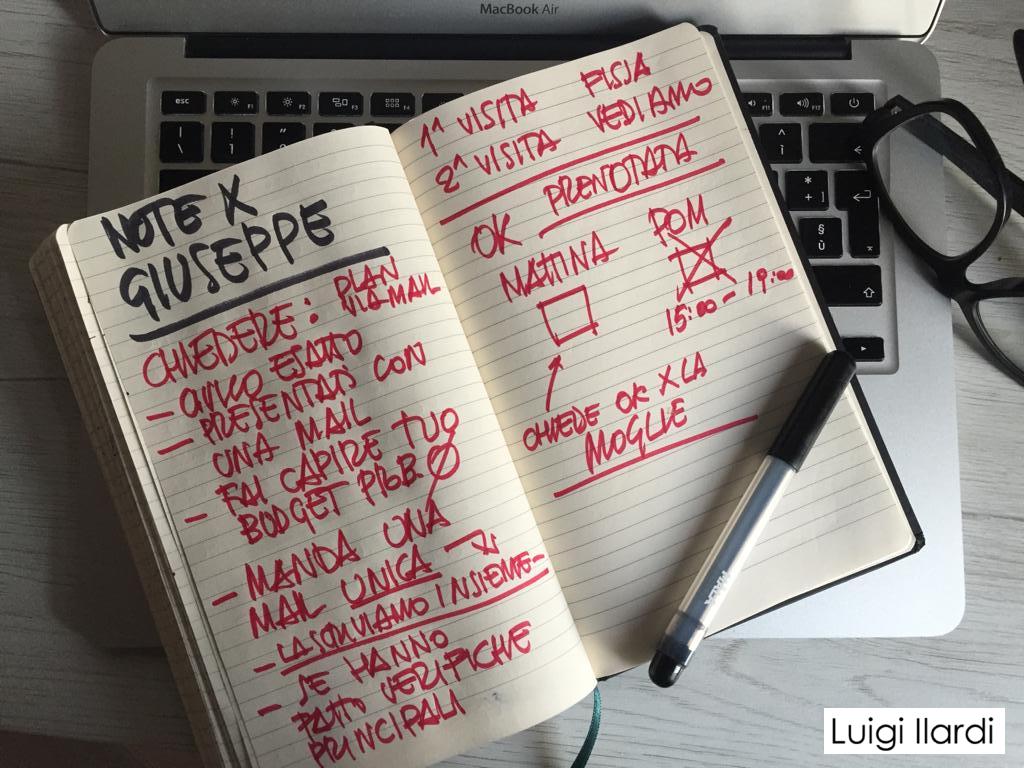 MacBook Air
esc
F1
F2
F3
F4
F11
F12
NOTE X
GIUSEPPE
CHIEDERE: PLAN
VIA MAIL
- AVVISO ESATTO
- PRESENTATI CON
UNA MAIL
- FAI CAPIRE TUO
BUDGET PUBB. Ø
- MANDA UNA
MAIL UNICA
- LA SCRIVIAMO INSIEME -
- SE HANNO
FATTO VERIFICHE
PRINCIPALI
1ª VISITA FISSA
2ª VISITA VEDIAMO
PRENOTATA
OK
MATTINA POM
15:00 - 19:00
CHIEDE OK X LA
MOGLIE
Luigi Ilardi